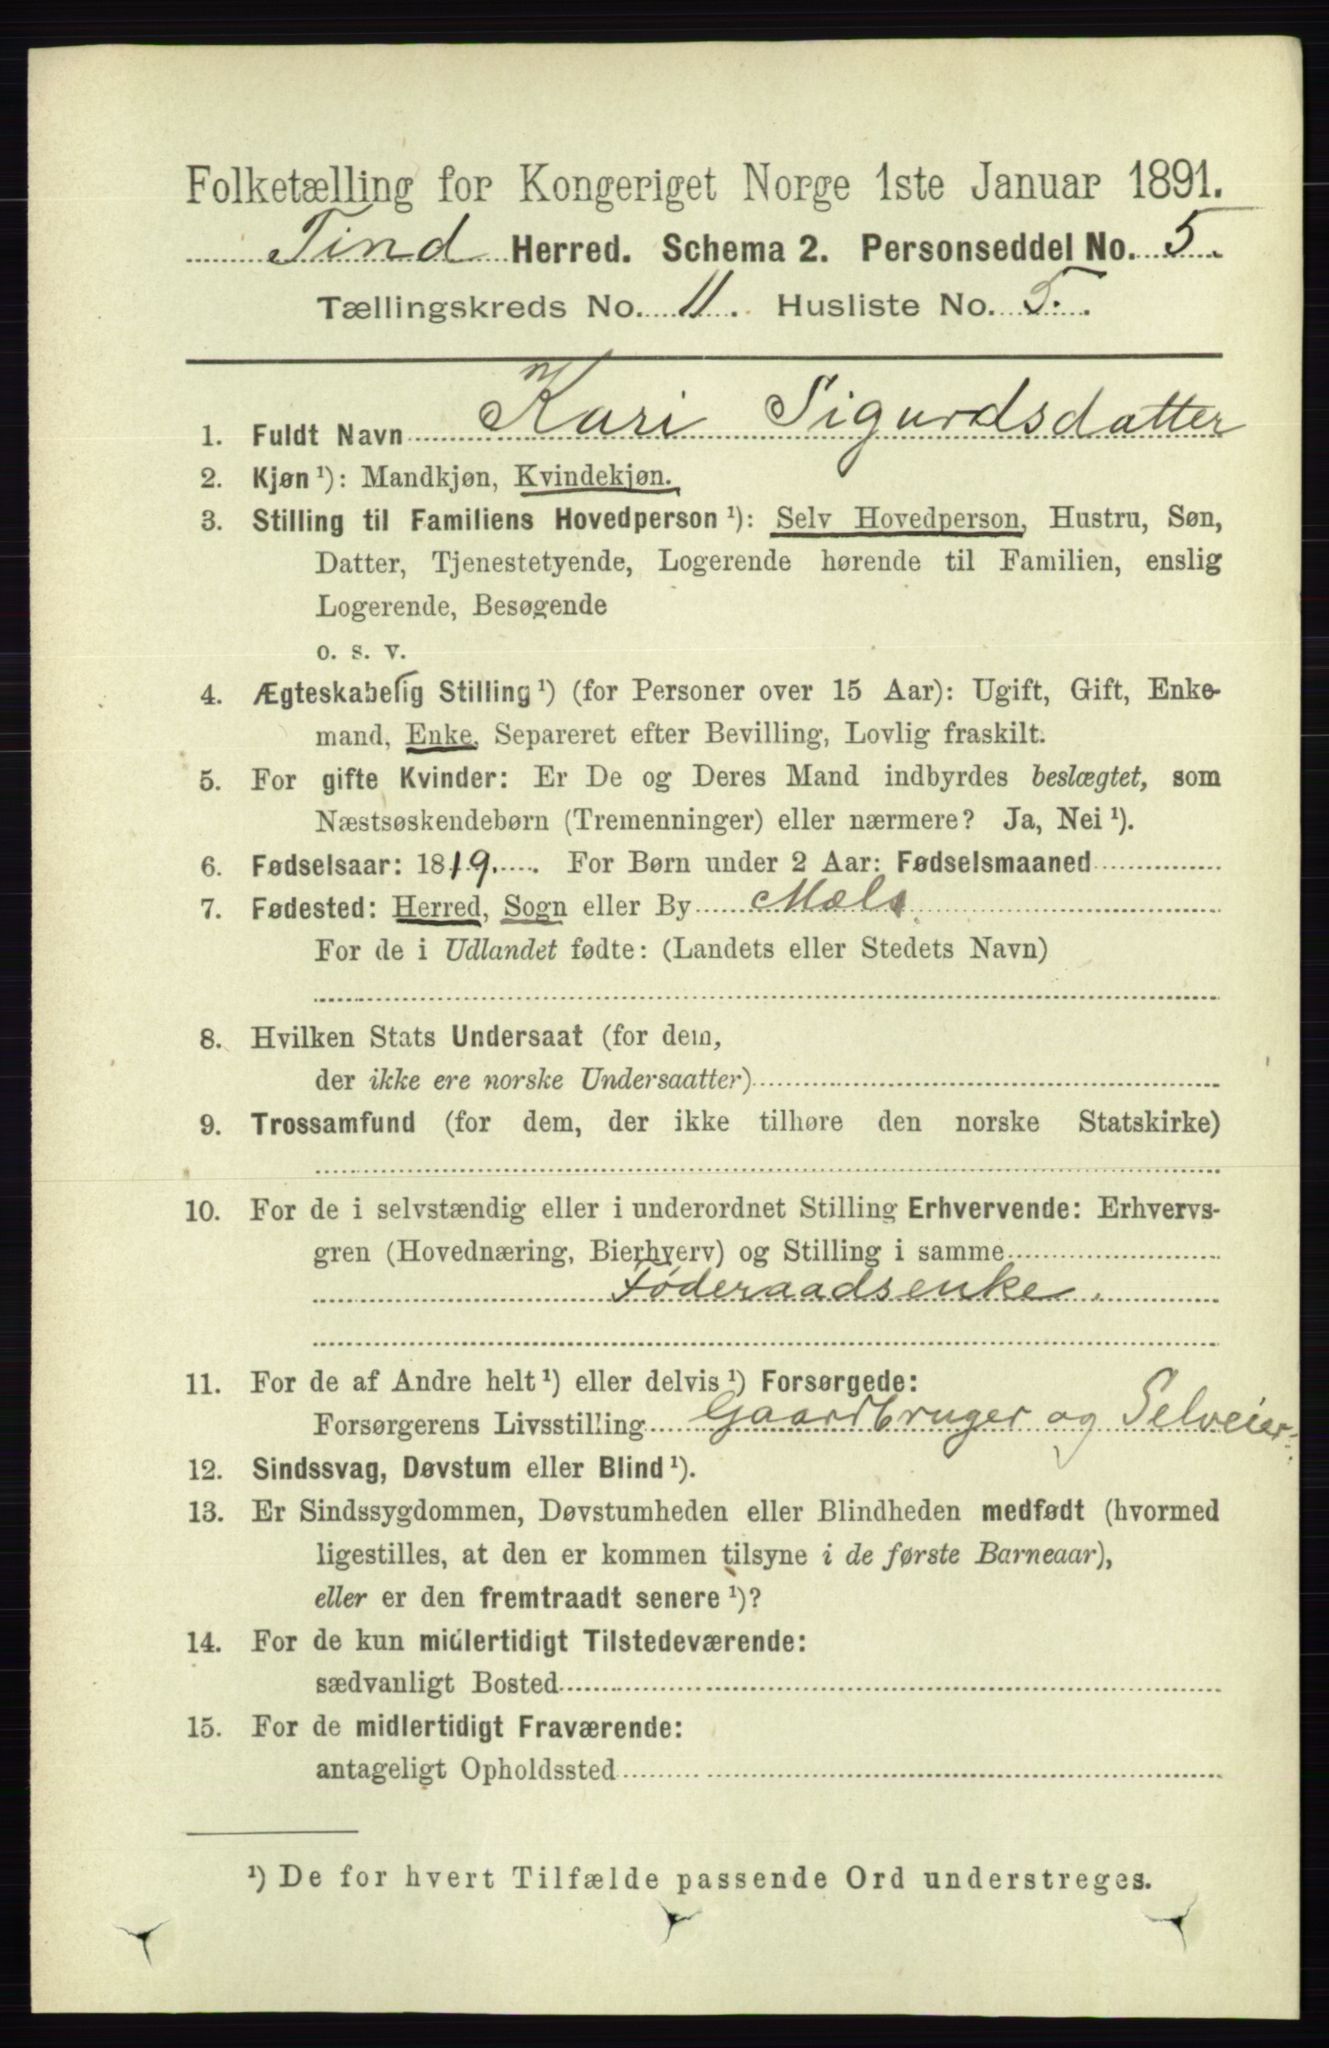 Folketælling for Kongeriget Norge 1ste Januar 1891.
Tind Herred. Schema 2. Personseddel No. 5.
Tællingskreds No. 11. Husliste No. 5.
1. Fuldt Navn Kari Sigurdsdatter
2. Kjøn ¹): Mandkjøn, Kvindekjøn.
3. Stilling til Familiens Hovedperson ¹): Selv Hovedperson, Hustru, Søn,
Datter, Tjenestetyende, Logerende hørende til Familien, enslig
Logerende, Besøgende
o. s. v.
4. Ægteskabelig Stilling ¹) (for Personer over 15 Aar): Ugift, Gift, Enke-
mand, Enke, Separeret efter Bevilling, Lovlig fraskilt.
5. For gifte Kvinder: Er De og Deres Mand indbyrdes beslægtet, som
Næstsøskendebørn (Tremenninger) eller nærmere? Ja, Nei ¹).
6. Fødselsaar: 1819. For Børn under 2 Aar: Fødselsmaaned
7. Fødested: Herred, Sogn eller By Mæls
For de i Udlandet fødte: (Landets eller Stedets Navn)
8. Hvilken Stats Undersaat (for dem,
der ikke ere norske Undersaatter)
9. Trossamfund (for dem, der ikke tilhøre den norske Statskirke)
10. For de i selvstændig eller i underordnet Stilling Erhvervende: Erhvervs-
gren (Hovednæring, Bierhverv) og Stilling i samme
Føderaadsenke.
11. For de af Andre helt ¹) eller delvis ¹) Forsørgede:
Forsørgerens Livsstilling Gaardbruger og Selveier.
12. Sindssvag, Døvstum eller Blind ¹).
13. Er Sindssygdommen, Døvstumheden eller Blindheden medfødt (hvormed
ligestilles, at den er kommen tilsyne i de første Barneaar),
eller er den fremtraadt senere ¹)?
14. For de kun midlertidigt Tilstedeværende:
sædvanligt Bosted
15. For de midlertidigt Fraværende:
antageligt Opholdssted
¹) De for hvert Tilfælde passende Ord understreges.